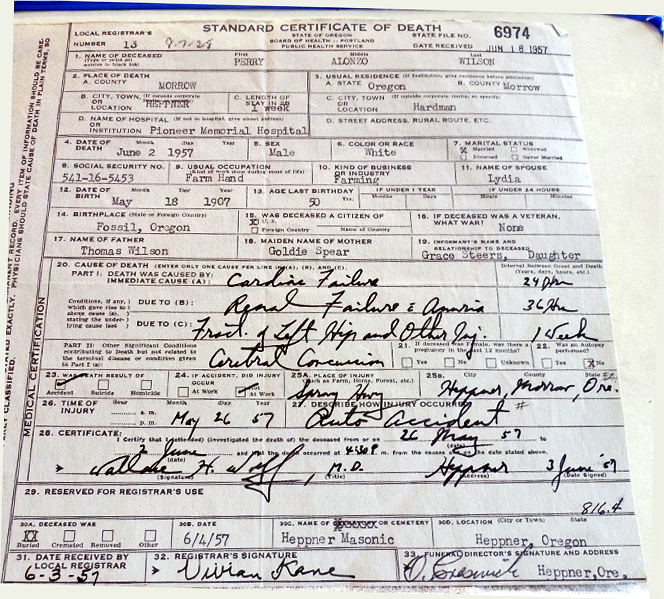 STANDARD CERTIFICATE OF DEATH
LOCAL REGISTRAR'S NUMBER 13
STATE OF OREGON
BOARD OF HEALTH -- PORTLAND
PUBLIC HEALTH SERVICE
STATE FILE NO. 6974
DATE RECEIVED JUN 18 1957
1. NAME OF DECEASED
(Type or print all entries in black ink)
First PERRY Middle ALONZO Last WILSON
2. PLACE OF DEATH
A. COUNTY MORROW
3. USUAL RESIDENCE
A. STATE Oregon B. COUNTY Morrow
B. CITY, TOWN, (If outside corporate OR LOCATION HEPPNER
C. LENGTH OF STAY IN 2B 1 week
C. CITY, TOWN, OR LOCATION Hardman
D. NAME OF HOSPITAL (If not in hospital, give street address) OR INSTITUTION Pioneer Memorial Hospital
D. STREET ADDRESS, RURAL ROUTE, ETC.
4. DATE OF DEATH Month Day Year June 2 1957
5. SEX Male
6. COLOR OR RACE White
7. MARITAL STATUS
X Married Widowed
Divorced Never Married
8. SOCIAL SECURITY NO. 541-16-5453
9. USUAL OCCUPATION
(Kind of work done during most of life)
Farm Hand
10. KIND OF BUSINESS OR INDUSTRY Farming
11. NAME OF SPOUSE Lydia
12. DATE OF BIRTH Month Day Year May 18 1907
13. AGE LAST BIRTHDAY 50 Yrs.
IF UNDER 1 YEAR Months Days
IF UNDER 24 HOURS Hours Minutes
14. BIRTHPLACE (State or Foreign Country) Fossil, Oregon
15. WAS DECEASED A CITIZEN OF
X U.S.
Foreign Country Name of Country
16. IF DECEASED WAS A VETERAN, WHAT WAR? None
17. NAME OF FATHER Thomas Wilson
18. MAIDEN NAME OF MOTHER Goldie Spear
19. INFORMANT'S NAME AND RELATIONSHIP TO DECEASED
Grace Steers, Daughter
20. CAUSE OF DEATH (ENTER ONLY ONE CAUSE PER LINE (A), (B), AND (C).
Interval Between Onset and Death
(Years, days, hours, etc.)
PART I: DEATH WAS CAUSED BY: IMMEDIATE CAUSE (A): Cardiac Failure 24 Hrs
Conditions, if any, which gave rise to above cause (A), stating the underlying cause last
DUE TO (B): Renal Failure & Anuria 36 Hrs
DUE TO (C): Fract. of Left Hip and Other Inj. 1 Week
PART II: Other Significant Conditions contributing to Death but not related to the terminal disease or condition given in Part I (a)
Cerebral Concussion
21. If deceased was Female, was there a pregnancy in the past 12 months?
Yes No Unknown
22. Was an Autopsy performed?
Yes X No
MEDICAL CERTIFICATION
23. WAS DEATH RESULT OF
Accident Suicide Homicide
24. IF ACCIDENT, DID INJURY OCCUR
At Work Not At Work
25A. PLACE OF INJURY
(Such as Farm, Home, Forest, etc.)
Spray Hwy
25B. City County State
Heppner, Morrow, Ore.
26. TIME OF INJURY Hour Month Day Year
a. m.
p. m.
May 26 57
27. DESCRIBE HOW INJURY OCCURRED
Auto Accident
28. CERTIFICATE:
I Certify that I (attended) (investigated the death of) the deceased from or on 26 May 57 to
2 June (date) and that death occurred at 4:30 P. m. from the causes and on the date stated above.
Wallace H. Wolff, M.D. Heppner 3 June '57
(Signature) (Title) (Address) (Date Signed)
29. RESERVED FOR REGISTRAR'S USE
816.4
30A. DECEASED WAS
XX Buried Cremated Removed Other
30B. DATE 6/4/57
30C. NAME OF OR CEMETERY Heppner Masonic
30D. LOCATION (City or Town) State
Heppner, Oregon
31. DATE RECEIVED BY LOCAL REGISTRAR 6-3-57
32. REGISTRAR'S SIGNATURE Vivian Kane
33. FUNERAL DIRECTOR'S SIGNATURE AND ADDRESS
Heppner, Ore.